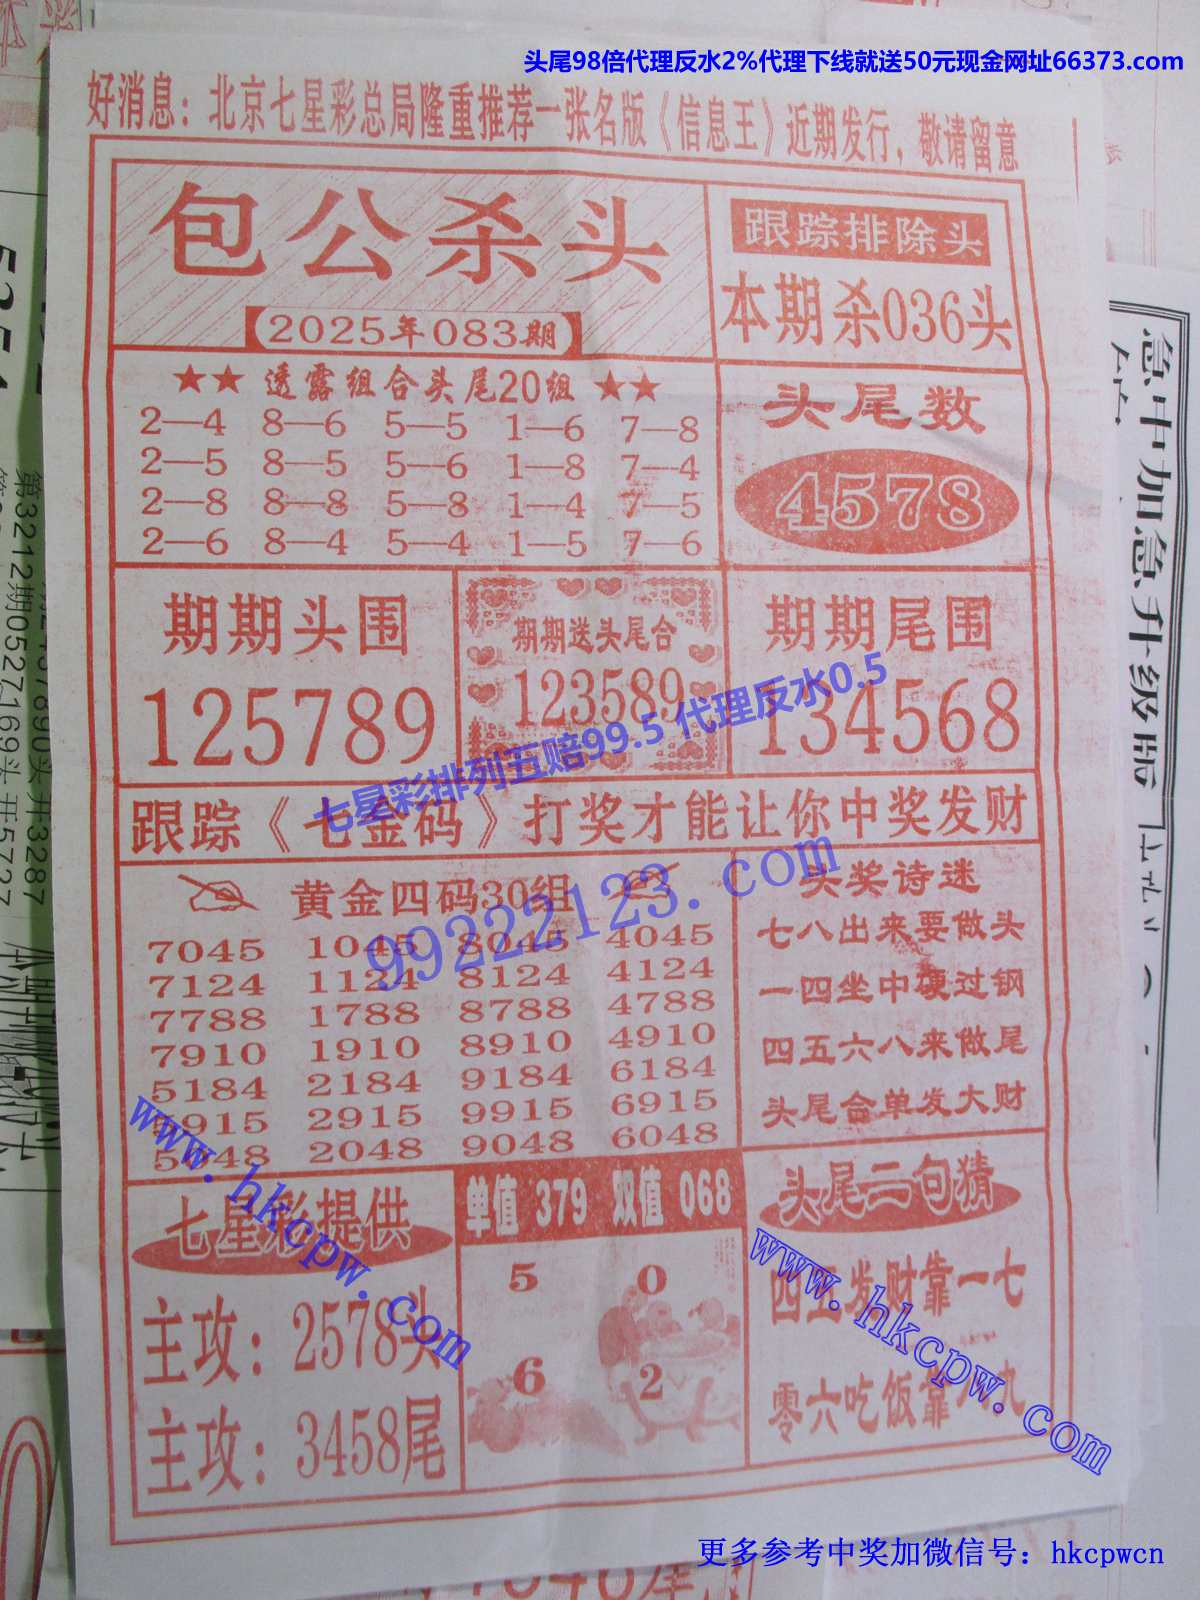 头尾98倍代理反水2%代理下线就送50元现金网址66373.com
好消息：北京七星彩总局隆重推荐一张名版《信息王》近期发行，敬请留意
包公杀头
【2025年083期】
跟踪排除头
本期杀036头
★★ 透露组合头尾20组 ★★
2—4 8—6 5—5 1—6 7—8
2—5 8—5 5—6 1—8 7—4
2—8 8—8 5—8 1—4 7—5
2—6 8—4 5—4 1—5 7—6
头尾数
4578
期期头围
125789
期期送头尾合
123589
期期尾围
134568
七星彩排列五赔99.5 代理反水0.5
跟踪《七金码》打奖才能让你中奖发财
99222123.com
黄金四码30组
7045 1045 8045 4045
7124 1124 8124 4124
7788 1788 8788 4788
7910 1910 8910 4910
5184 2184 9184 6184
5915 2915 9915 6915
5048 2048 9048 6048
头奖诗迷
七八出来要做头
一四坐中硬过钢
四五六八来做尾
头尾合单发大财
www.hkcpw.com
七星彩提供
主攻：2578头
主攻：3458尾
单值 379 双值 068
5 0
6 2
头尾二句猜
四五发财靠一七
零六吃饭靠 九
www.hkcpw.com
急中加急升级版
第3212期0527169头开5727
更多参考中奖加微信号：hkcpwcn